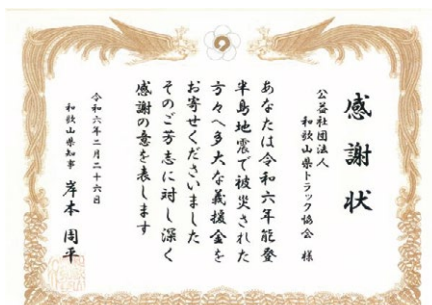 感謝状
公益社団法人
和歌山県トラック協会 様
あなたは令和六年能登
半島地震で被災された
方々へ多大な義援金を
お寄せくださいました
そのご芳志に対し深く
感謝の意を表します
令和六年二月二十六日
和歌山県知事 岸本周平